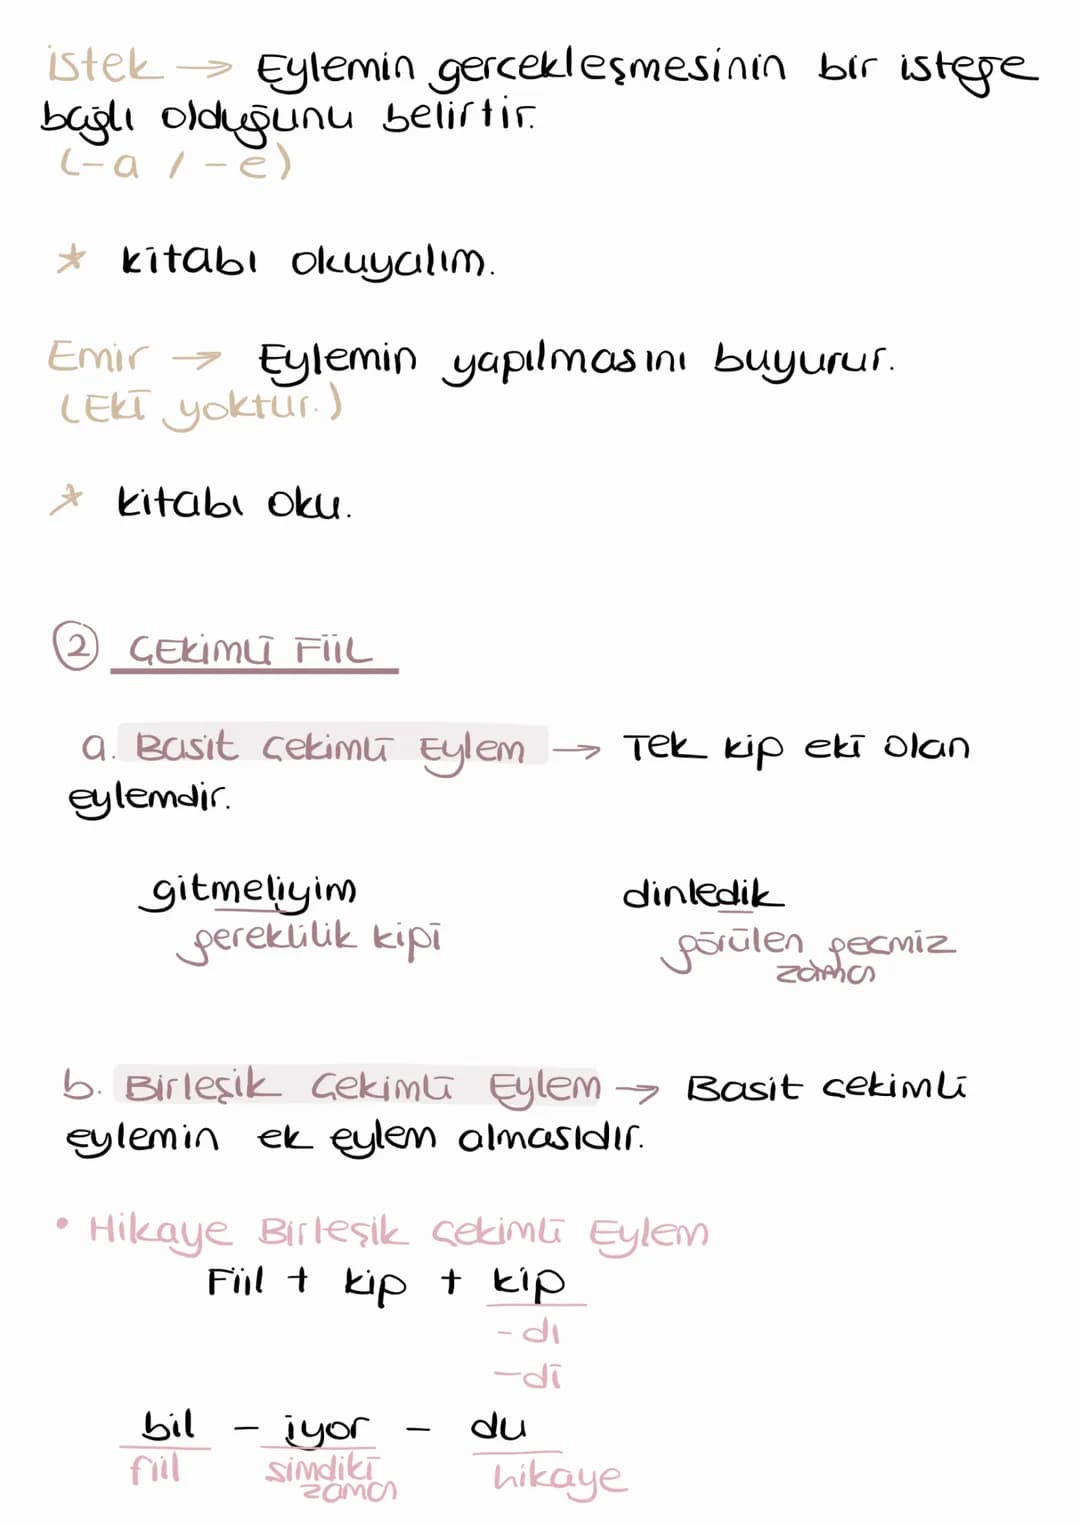 istek → Eylemin gercekleşmesinin bir isteğe
bağlı olduğunu belirtir.
(-a / -e)
* kitabı okuyalım.
Emir → Eylemin yapılmasını buyurur.
(Eki yoktur.)
* kitabı oku.
② ÇEKİMLİ FİİL
a. Basit Çekimli Eylem → Tek kip eki olan
eylemdir.
gitmeliyim dinledik
gereklilik kipi görülen gecmiz
zaman
b. Birleşik Çekimli Eylem → Basit cekimli
eylemin ek eylem almasıdır.
• Hikaye Birleşik Çekimli Eylem
Fiil + kip + kip
-dı
-di
bil - iyor - du
fiil simdiki hikaye
zaman